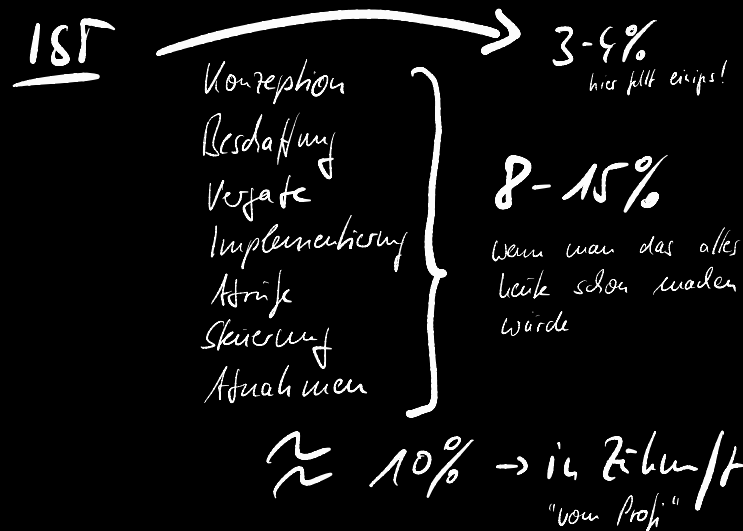 IST → 3-4%
hier fehlt einiges!
Konzeption
Beschaffung
Vergabe
Implementierung
Abrufe
Steuerung
Abnahmen
8-15%
wenn man das alles
heute schon machen
würde
≈ 10% → in Zukunft
"vom Profi"